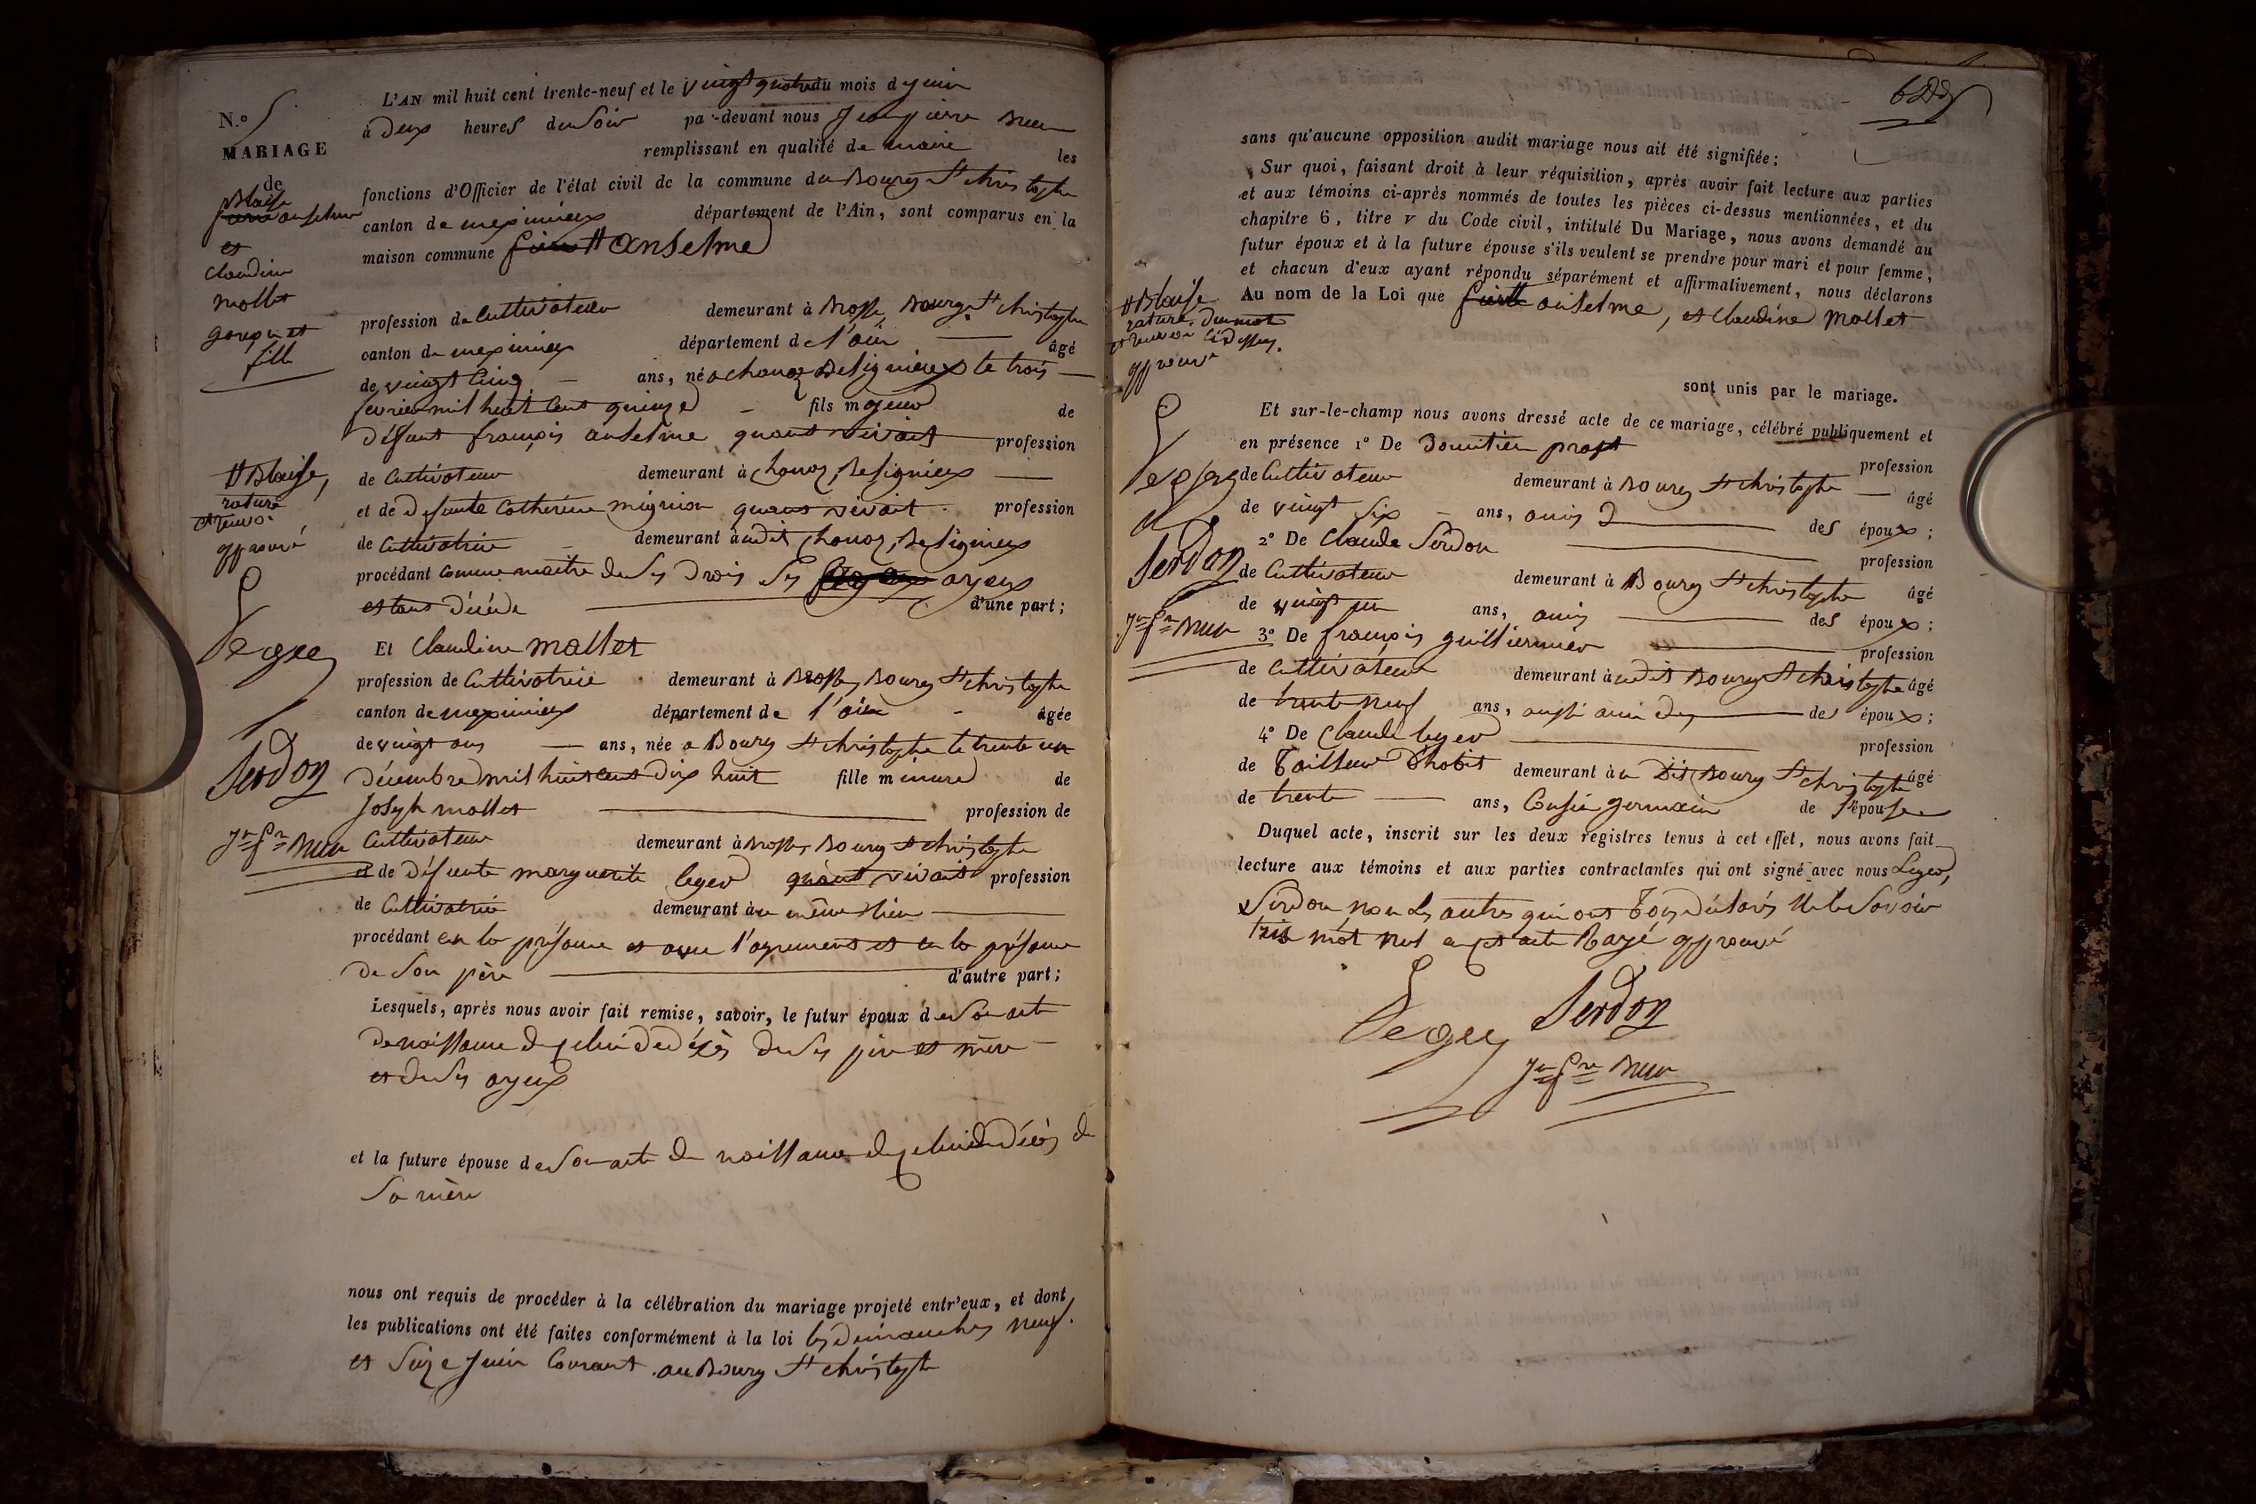 N.º 5
MARIAGE
de
Blaise
anselme
et
Claudine
mollet
garçon et
fille
L'AN mil huit cent trente-neuf et le vingt quatre du mois de juin
à deux heures du soir par-devant nous Jean pierre
remplissant en qualité de maire les
fonctions d'Officier de l'état civil de la commune du Bourg St christophe
canton de meximieux département de l'Ain, sont comparus en la
maison commune # anselme
profession de Cultivateur demeurant à Bourg St christophe
canton de meximieux département de l'ain âgé
de vingt cinq ans, né a chanoz de signieux le trois
fevrier mil huit cent quinze fils majeur de
défunt françois anselme quant vivait profession
# Blaise,
raturé
approuvé
de Cultivateur demeurant à chanoz, de signieux
et de defunte Catherine mignion quant vivait profession
de Cultivatrice demeurant audit chanoz, de signieux
procédant comme maitre de ses droits ses ayeux
et tous décédé d'une part;
Leger
Serdon
Jn Pre
Et Claudine mollet
profession de Cultivatrice demeurant à Bourg St christophe
canton de meximieux département de l'ain âgée
de vingt ans ans, née a Bourg St christophe le trente un
décembre mil huit cent dix huit fille mineure de
Joseph mollet profession de
Cultivateur demeurant à Bourg St christophe
et de défunte marguerite leger quant vivait profession
de Cultivatrice demeurant au même lieu
procédant en la présence et avec l'agrement et en la présence
de son père d'autre part;
Lesquels, après nous avoir fait remise, savoir, le futur époux de son acte
de naissance de celui de décès de ses père et mère
et de ses ayeux
et la future épouse de son acte de naissance de celui de décès de
sa mère
nous ont requis de procéder à la célébration du mariage projeté entr'eux, et dont
les publications ont été faites conformément à la loi les dimanches neuf
et seize juin Courant au Bourg St christophe
sans qu'aucune opposition audit mariage nous ait été signifiée;
Sur quoi, faisant droit à leur réquisition, après avoir fait lecture aux parties
et aux témoins ci-après nommés de toutes les pièces ci-dessus mentionnées, et du
chapitre 6, titre v du Code civil, intitulé Du Mariage, nous avons demandé au
futur époux et à la future épouse s'ils veulent se prendre pour mari et pour femme,
et chacun d'eux ayant répondu séparément et affirmativement, nous déclarons
Au nom de la Loi que # anselme, et Claudine mollet
# Blaise
rature du mot
et renvoi ci dessus.
approuvé
sont unis par le mariage.
Et sur-le-champ nous avons dressé acte de ce mariage, célébré publiquement et
en présence 1º De Domitien prost profession
de Cultivateur demeurant à Bourg St christophe âgé
de vingt six ans, amis des époux;
2º De Claude Serdon profession
de Cultivateur demeurant à Bourg St christophe âgé
de vingt un ans, amis des époux;
3º De françois guilliermier profession
de Cultivateur demeurant audit Bourg St christophe âgé
de trente neuf ans, aussi ami des des époux;
4º De Claude leger profession
de Tailleur D'habit demeurant au dit Bourg St christophe âgé
de trente ans, Cousin germain de l'épouse
Leger
Serdon
Jn Pre
Duquel acte, inscrit sur les deux registres tenus à cet effet, nous avons fait
lecture aux témoins et aux parties contractantes qui ont signé avec nous Leger,
Serdon non les autres qui ont tous déclarés ne le savoir
trois mot nul a cet acte Rayé approuvé
Leger Serdon
Jn Pre